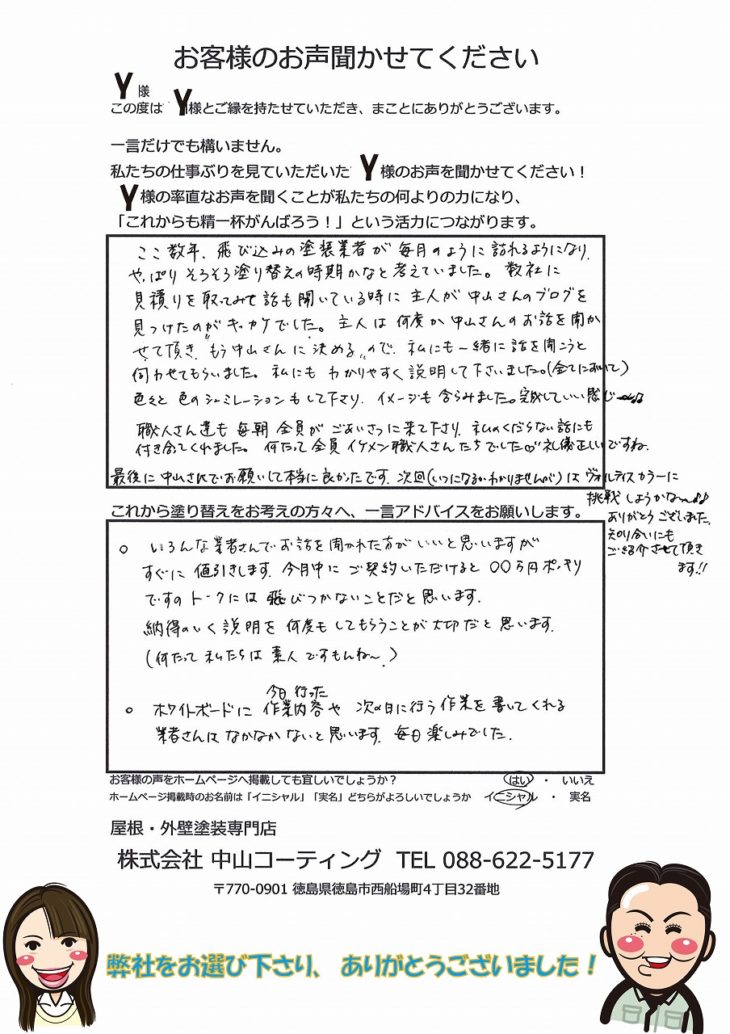 お客様のお声聞かせてください
Y 様
この度は Y様とご縁を持たせていただき、まことにありがとうございます。
一言だけでも構いません。
私たちの仕事ぶりを見ていただいた Y様のお声を聞かせてください！
Y様の率直なお声を聞くことが私たちの何よりの力になり、
「これからも精一杯がんばろう！」という活力につながります。
ここ数年、飛び込みの塗装業者が毎月のように訪れるようになり、
やっぱりそろそろ塗り替えの時期かなと考えていました。数社に
見積りを取ってみて話も聞いている時に主人が中山さんのブログを
見つけたのがキッカケでした。主人は何度か中山さんのお話を聞か
せて頂き、"もう中山さんに決める"ので、私にも一緒に話を聞こうと
伺わせてもらいました。私にもわかりやすく説明して下さいました。(全てにおいて)
色々と色のシュミレーションもして下さり、イメージも含らみました。完成していい感じ〜♪
職人さん達も毎朝全員がごあいさつに来て下さり、私のくだらない話にも
付き合ってくれました。何たって全員イケメン職人さんたちでした♡礼儀正しいですね。
最後に中山さんでお願いして本当に良かったです。次回(いつになるかわかりませんが)はヴォルティスカラーに
挑戦しようかな〜♪♪
ありがとうございました。
知り合いにも
ご紹介させて頂き
ます!!
これから塗り替えをお考えの方々へ、一言アドバイスをお願いします。
○ いろんな業者さんでお話を聞かれた方がいいと思いますが
すぐに値引きします、今月中にご契約いただけると〇〇万円ポッキリ
ですのトークには飛びつかないことだと思います。
納得のいく説明を何度もしてもらうことが大切だと思います。
(何たって私たちは素人ですもんね〜。)
今日行った
○ ホワイトボードに作業内容や次の日に行う作業を書いてくれる
業者さんはなかなかないと思います。毎日楽しみでした。
お客様の声をホームページへ掲載しても宜しいでしょうか？ はい ・ いいえ
ホームページ掲載時のお名前は「イニシャル」「実名」どちらがよろしいでしょうか イニシャル ・ 実名
屋根・外壁塗装専門店
株式会社 中山コーティング TEL 088-622-5177
〒770-0901 徳島県徳島市西船場町4丁目32番地
弊社をお選び下さり、ありがとうございました！